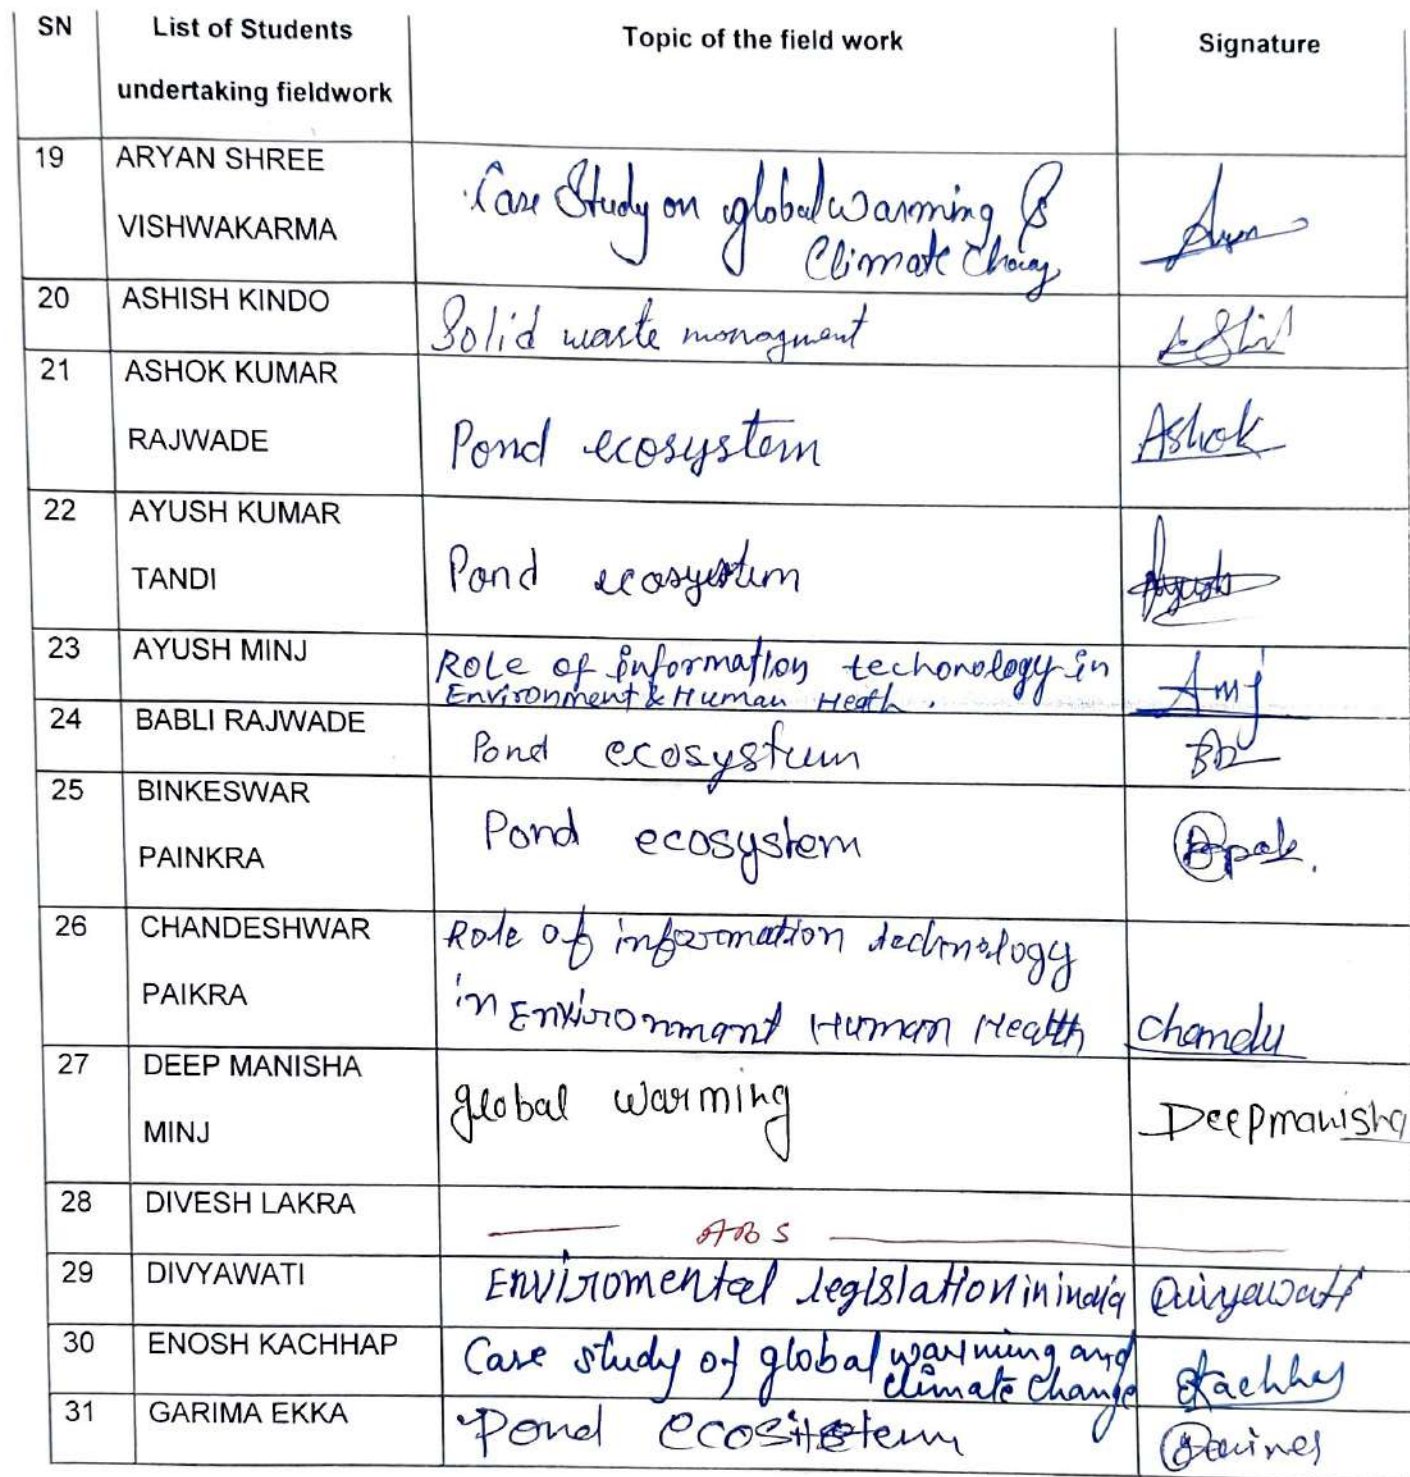 SN List of Students Topic of the field work Signature
undertaking fieldwork
19 ARYAN SHREE
VISHWAKARMA
Case Study on global warming &
Climate Chang
20 ASHISH KINDO Solid waste monagment
21 ASHOK KUMAR
RAJWADE Pond ecosystem Ashok
22 AYUSH KUMAR
TANDI Pond ecosyestem Ayush
23 AYUSH MINJ Role of information techonology in
Environment & Human Heath. Amj
24 BABLI RAJWADE Pond ecosystem
25 BINKESWAR
PAINKRA Pond ecosystem
26 CHANDESHWAR Role of information technology
PAIKRA in Environmant Human Health Chandu
27 DEEP MANISHA
MINJ global warming Deepmanisha
28 DIVESH LAKRA ABS
29 DIVYAWATI Enviromental legislation in india Divyawati
30 ENOSH KACHHAP Case study of global warming and
climate change Kachhap
31 GARIMA EKKA Pond ecositetem